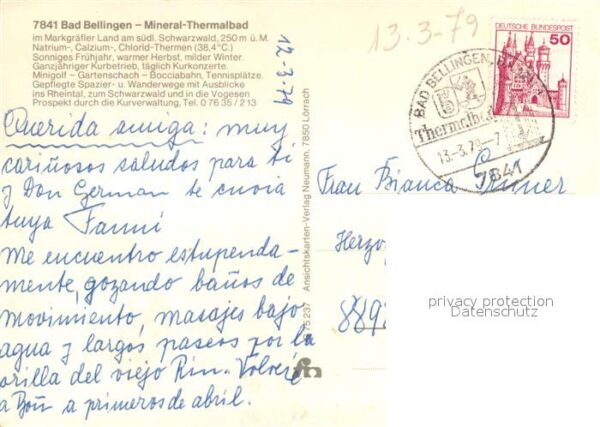 7841 Bad Bellingen – Mineral-Thermalbad
im Markgräfler Land am südl. Schwarzwald, 250 m ü. M.
Natrium-, Calzium-, Chlorid-Thermen (38,4°C.)
Sonniges Frühjahr, warmer Herbst, milder Winter.
Ganzjähriger Kurbetrieb, täglich Kurkonzerte.
Minigolf – Gartenschach – Bocciabahn, Tennisplätze.
Gepflegte Spazier- u. Wanderwege mit Ausblicke
ins Rheintal, zum Schwarzwald und in die Vogesen
Prospekt durch die Kurverwaltung, Tel. 0 76 35 / 2 13
12-3-79
Querida amiga: muy
cariñosos saludos para ti
y Don German te envia
tuya Fanni
Me encuentro estupenda-
mente, gozando baños de
movimiento, masajes bajo
agua y largos paseos por la
orilla del viejo Rin. Volveré
a Bonn a primeros de abril.
75 237 Ansichtskarten-Verlag Neumann, 7850 Lörrach
13-3-79
DEUTSCHE BUNDESPOST
50
BAD BELLINGEN
Thermalbad
13.-3.79.-7
7841
Frau Bianca
Herzog
8892
privacy protection
Datenschutz